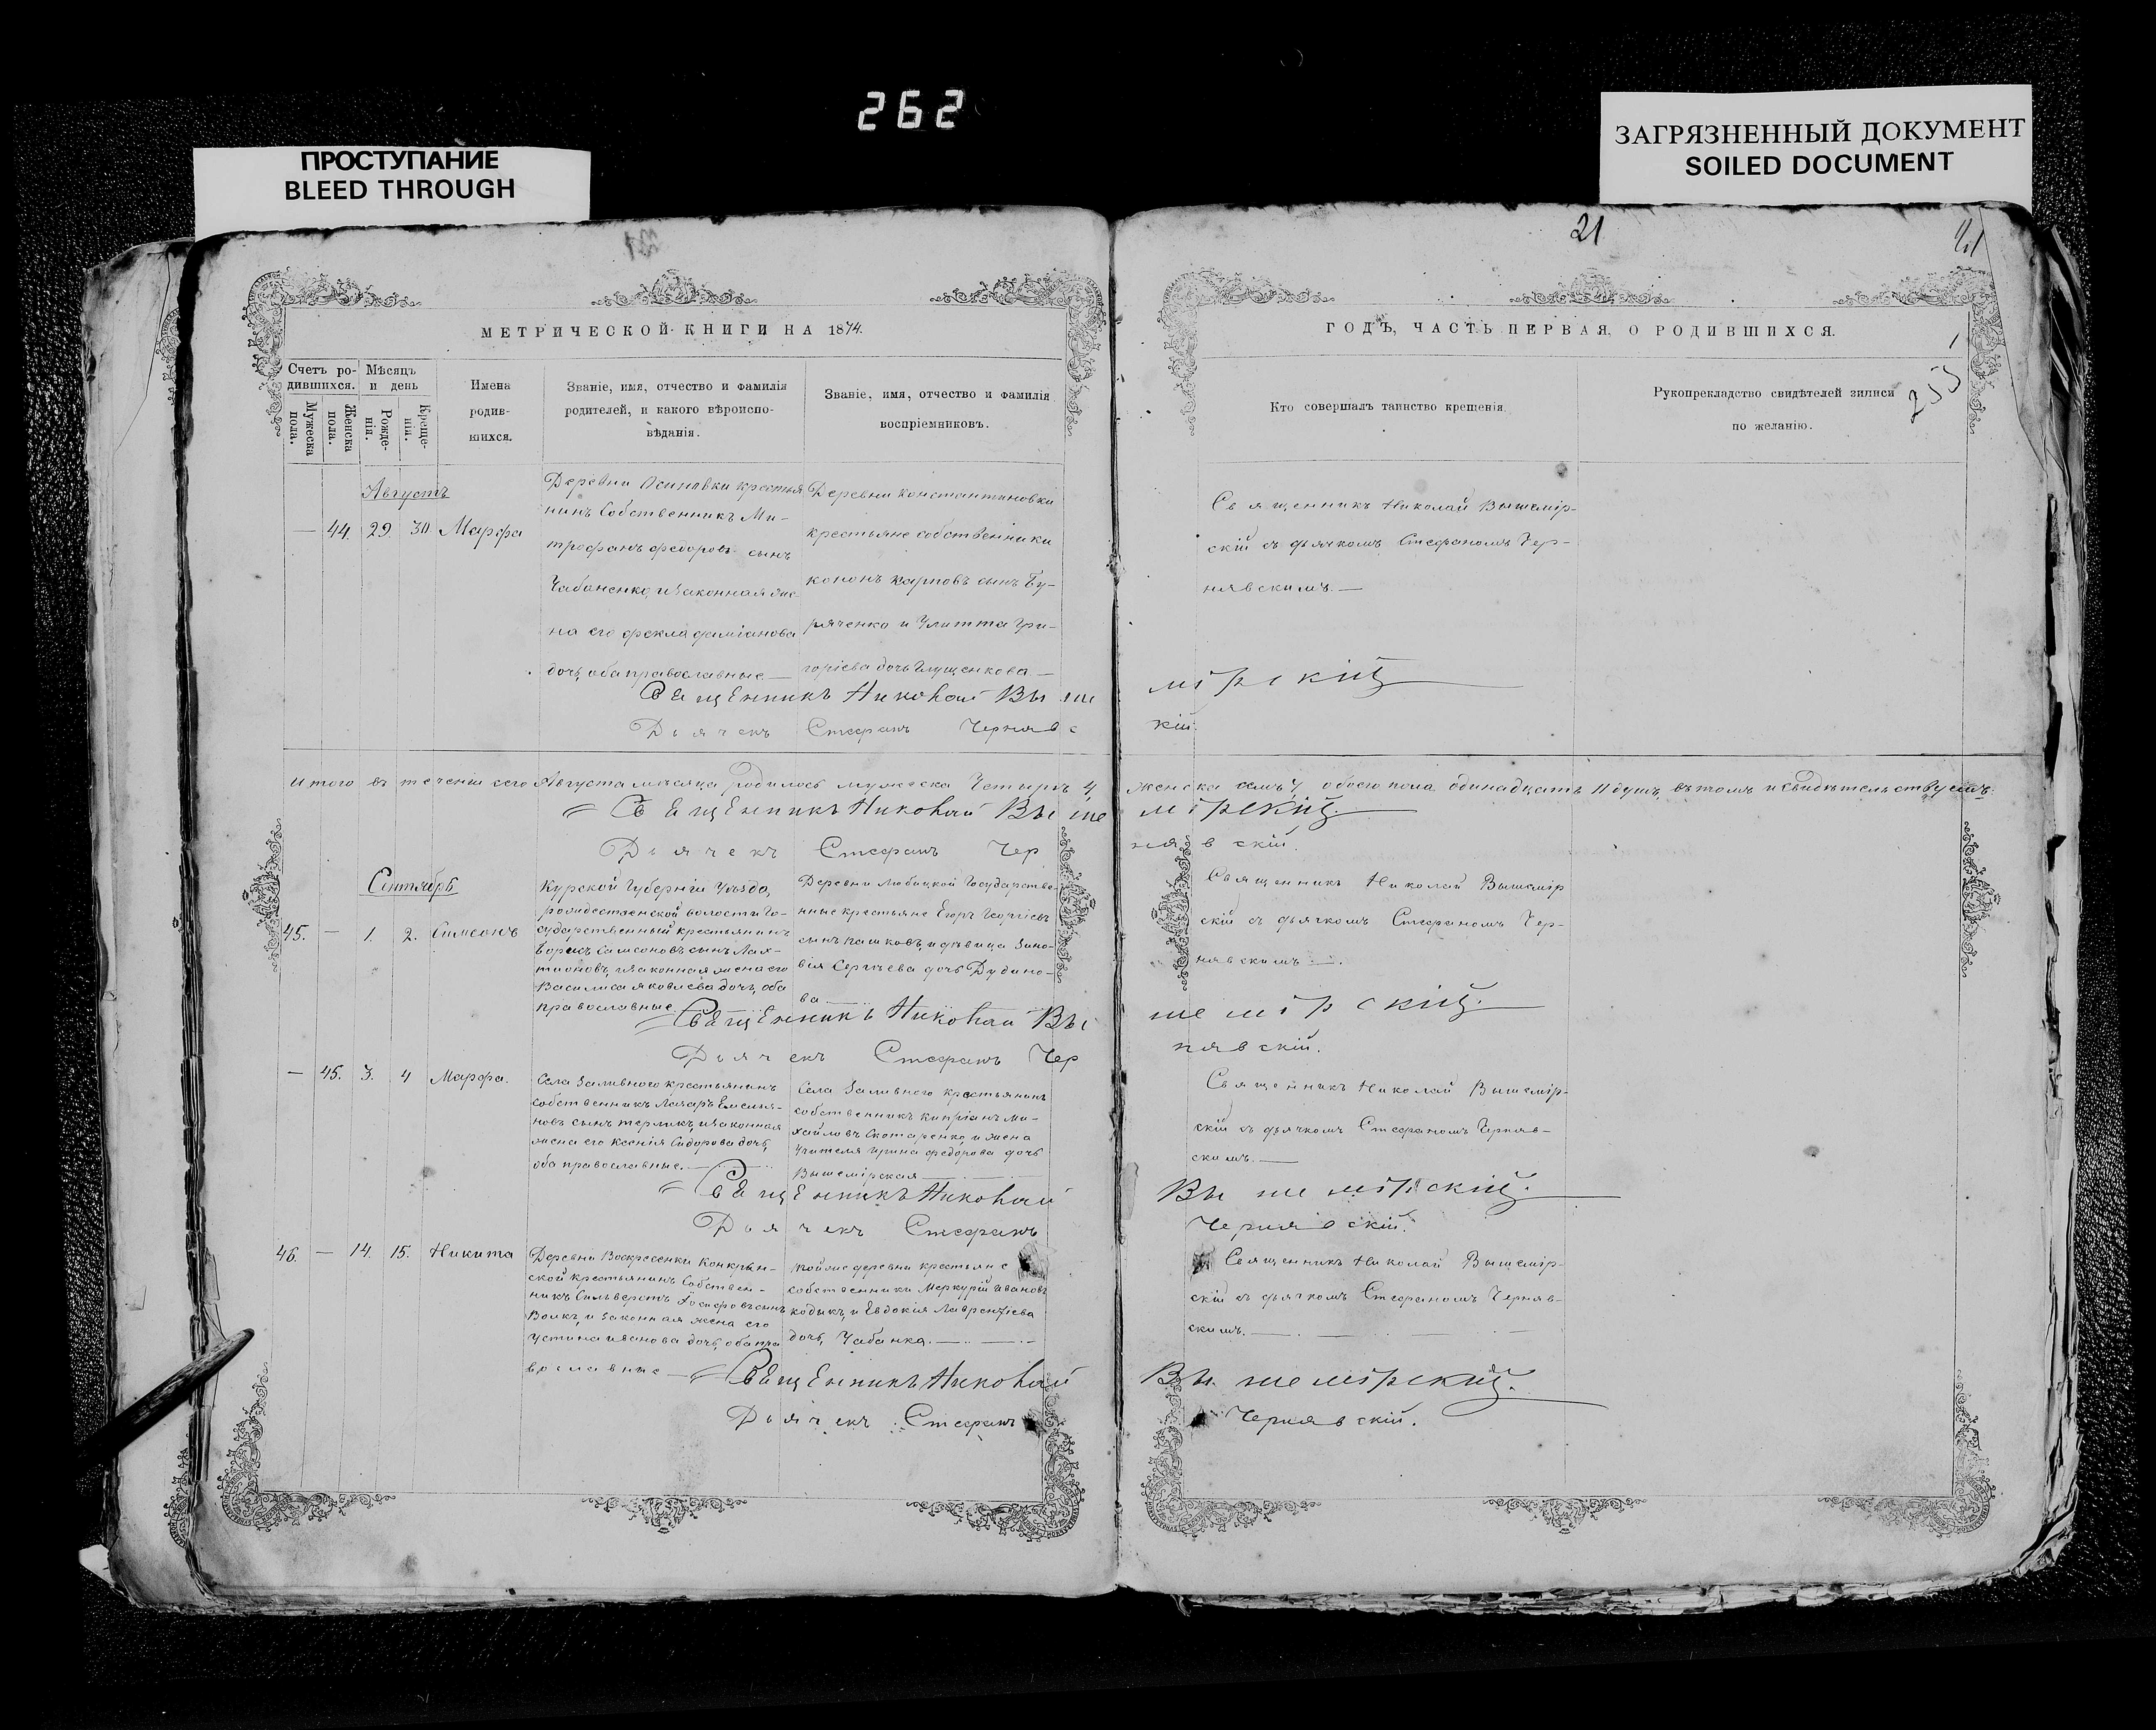 262
ПРОСТУПАНИЕ
BLEED THROUGH
ЗАГРЯЗНЕННЫЙ ДОКУМЕНТ
SOILED DOCUMENT
21
МЕТРИЧЕСКОЙ КНИГИ НА 1874.
Счетъ ро-
дившихся.
Мужеска пола.
Женска пола.
Мѣсяцъ
и день
Рожде-
нія.
Креще-
нія.
Имена
родив-
шихся.
Званіе, имя, отчество и фамилія
родителей, и какого вѣроиспо-
вѣданія.
Званіе, имя, отчество и фамилія
воспріемниковъ.
ГОДЪ, ЧАСТЬ ПЕРВАЯ, О РОДИВШИХСЯ.
Кто совершалъ таинство крещенія.
Рукоприкладство свидѣтелей записи
по желанію.
Августъ
— 44. 29. 30. Марфа
Деревни Осиновки крестья
нинъ Собственникъ Ми-
трофанъ Федоровъ сынъ
Чабаненко, и законная же
на его Фекла Даміанова
дочь, оба православные —
Деревни Константиновки
крестьяне собственники
Кононъ Карповъ сынъ Бу-
ряченко и Улитта Гри-
горіева дочь Глущенкова —
Священникъ Николай Вышемір-
скій съ дьячкомъ Стефаномъ Чер-
нявскимъ. —
Священникъ Николай Вышемірскій
Дьячекъ Стефанъ Чернявскій.
Итого въ теченіи сего Августа мѣсяца родилось мужеска Четыре 4, женска семь 7, обоего пола одинадцать 11 душъ, въ томъ и свидѣтельствуемъ.
Священникъ Николай Вышемірскій.
Дьячекъ Стефанъ Чернявскій.
Сентябрь
45. — 1. 2. Симеонъ
Курской Губерніи Уѣзда,
рождественской волости Го-
сударственный крестьянинъ
Борисъ Самсоновъ сынъ
законная жена его
Василиса Яковлева дочь, оба
православные
Деревни Любицкой Государстве-
нные крестьяне Егоръ Георгіевъ
сынъ Пашковъ, и дѣвица Зино-
вія Сергѣева дочь Дудино-
ва —
Священникъ Николай Вышемір
скій съ дьячкомъ Стефаномъ Чер-
нявскимъ —.
Священникъ Николай Вышемірскій.
Дьячекъ Стефанъ Чернявскій.
— 45. 3. 4 Марфа.
Села Заливного крестьянинъ
собственникъ Лазарь Емелья-
новъ сынъ Терликъ, и законная
жена его Ксенія Сидорова дочь,
оба православные. —
Села Заливного крестьянинъ
собственникъ Кипріанъ Ми-
хайловъ Скотаренко, и жена
Учителя Ирина Федорова дочь
Вышемірская —
Священникъ Николай Вышемір-
скій съ дьячкомъ Стефаномъ Черняв-
скимъ. —
Священникъ Николай Вышемірскій.
Дьячекъ Стефанъ Чернявскій.
46. — 14. 15. Никита
Деревни Воскресенки Конкрин-
ской крестьянинъ Собствен-
никъ Сильвестръ Іосифовъ сынъ
Волкъ, и законная жена его
Устина Иванова дочь, оба пра
вославные —
Тойже деревни крестьяне
собственники Меркурій Ивановъ
Кодыкъ, и Евдокія Лаврентіева
дочь, Чабанка. —
Священникъ Николай Вышемір-
скій съ дьячкомъ Стефаномъ Черняв-
скимъ. —
Священникъ Николай Вышемірскій.
Дьячекъ Стефанъ Чернявскій.